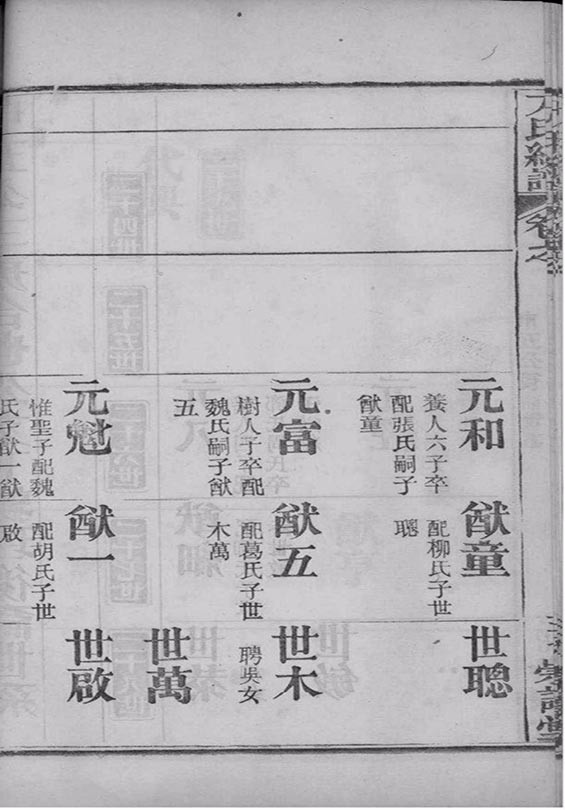 元和
養人六子卒
配張氏嗣子
猷童
猷童
配柳氏子世
聰
世聰
元富
樹人子卒配
魏氏嗣子猷
五
猷五
配葛氏子世
木萬
世木
聘吳女
世萬
元魁
惟聖子配魏
氏子猷一猷
猷一
配胡氏子世
啟
世啟